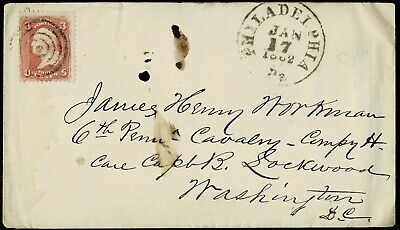 PHILADELPHIA
JAN
17
1862
Pa.
3 3
James Henry Workman
6th Penna Cavalry - Compy H.
Care Capt B. Lockwood
Washington
D.C.